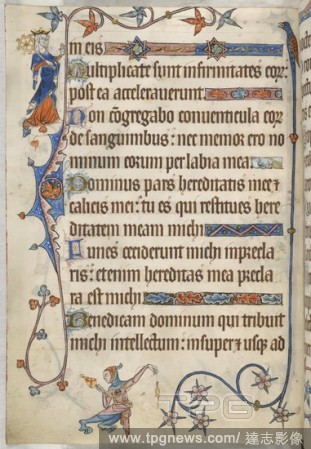 m eis
Multiplicate sunt infirmitates eoȝ:
post ea acceleraverunt.
Non cōgregabo conventicula eoȝ
de sanguinibus: nec memor ero no
minum eorum per labia mea.
Dominus pars hereditatis mee ⁊
calicis mei: tu es qui restitues here
ditatem meam michi
Funes ceciderunt michi in p̄cla
ris: etenim hereditas mea precla
ra est michi
Benedicam dominum qui tribuit
michi intellectum: insuper ⁊ usq; ad
TPG
www.tpgnews.com/ 達志影像